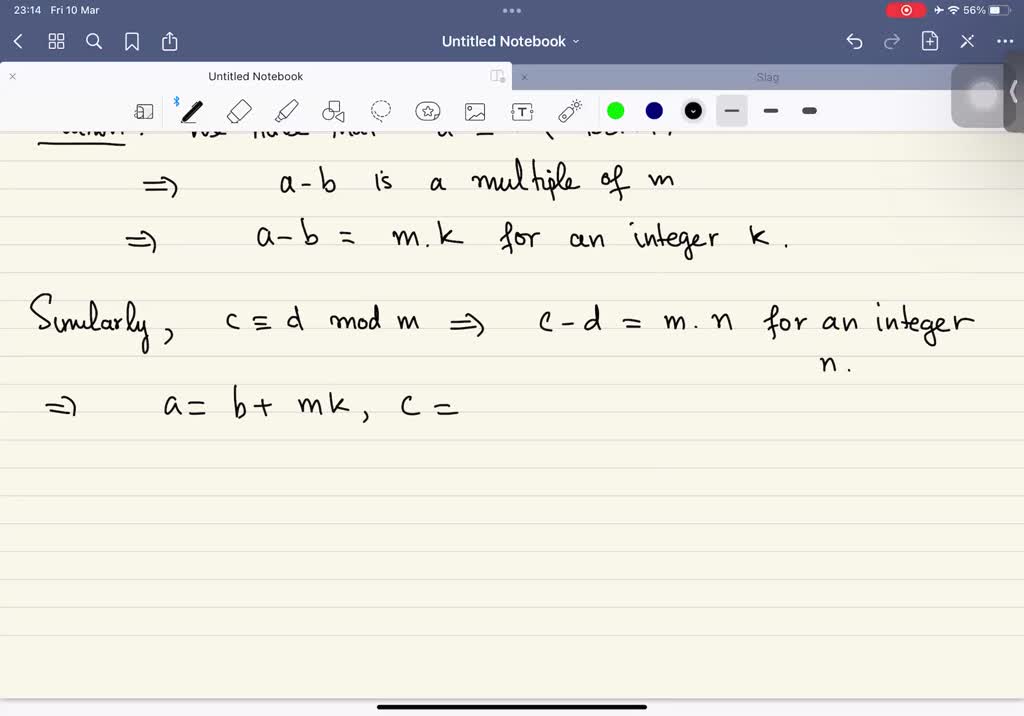 23:14 Fri 10 Mar
56%
Untitled Notebook
Untitled Notebook
Slag
T
⇒ a-b is a multiple of m
⇒ a-b = m.k for an integer k.
Similarly, c ≡ d mod m ⇒ c-d = m.n for an integer
n.
⇒ a = b + mk, c =